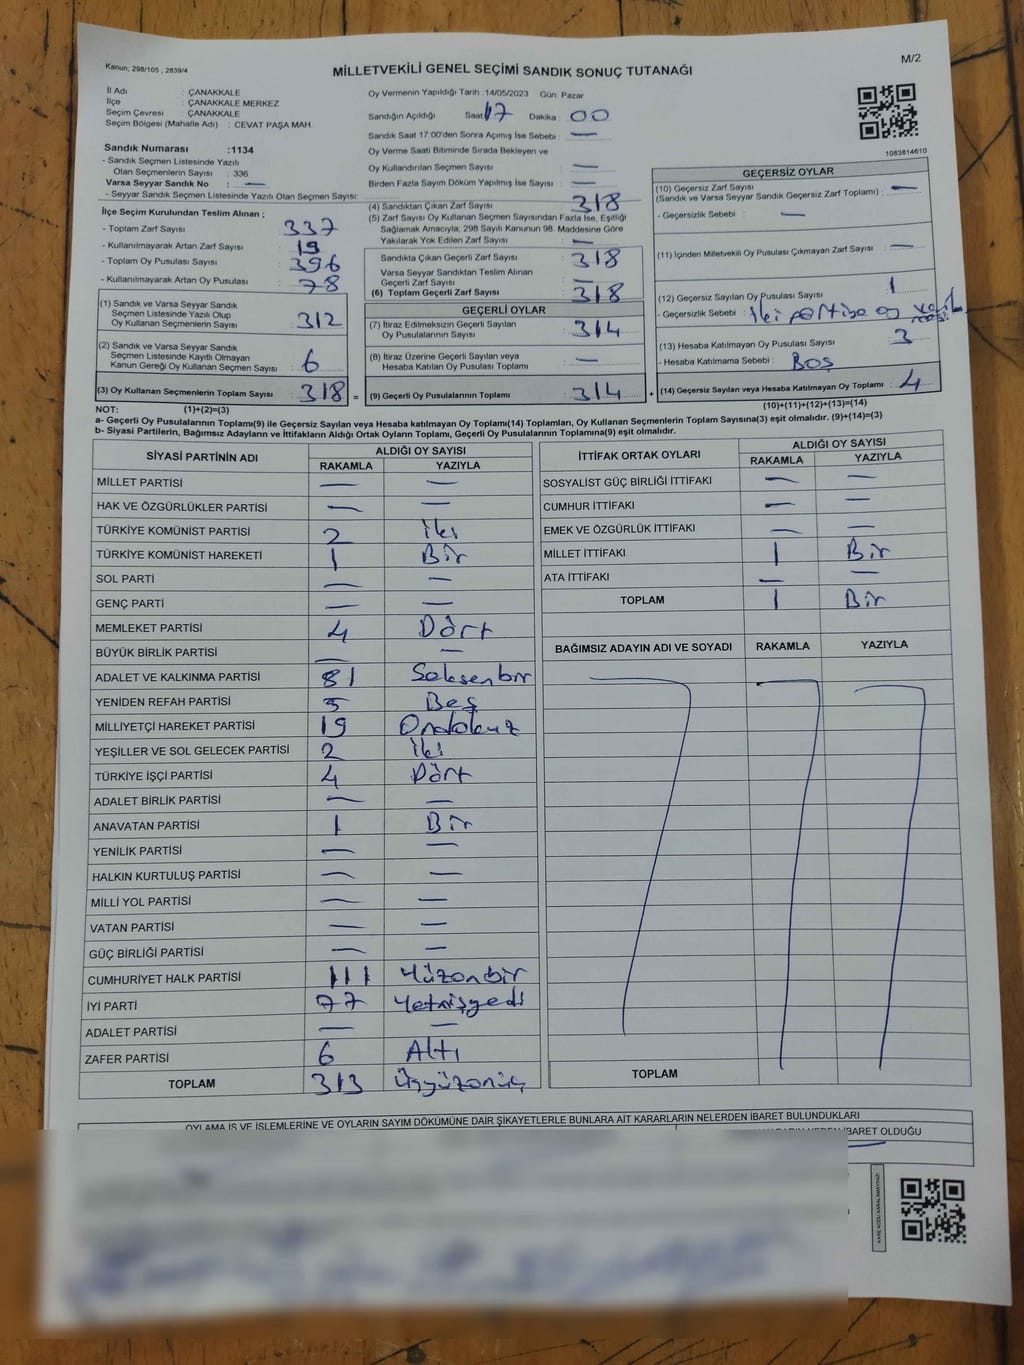 Kanun; 298/105 , 2839/4
M/2
MİLLETVEKİLİ GENEL SEÇİMİ SANDIK SONUÇ TUTANAĞI
İl Adı : ÇANAKKALE
İlçe : ÇANAKKALE MERKEZ
Seçim Çevresi : ÇANAKKALE
Seçim Bölgesi (Mahalle Adı) : CEVAT PAŞA MAH.
Sandık Numarası :1134
- Sandık Seçmen Listesinde Yazılı
Olan Seçmenlerin Sayısı : 336
Varsa Seyyar Sandık No : —
- Seyyar Sandık Seçmen Listesinde Yazılı Olan Seçmen Sayısı:
Oy Vermenin Yapıldığı Tarih :14/05/2023 Gün: Pazar
Sandığın Açıldığı Saat 17 Dakika : 00
Sandık Saat 17:00'den Sonra Açılmış İse Sebebi : —
Oy Verme Saati Bitiminde Sırada Bekleyen ve
Oy Kullandırılan Seçmen Sayısı : —
Birden Fazla Sayım Döküm Yapılmış İse Sayısı : —
1083814610
İlçe Seçim Kurulundan Teslim Alınan ;
- Toplam Zarf Sayısı : 337
- Kullanılmayarak Artan Zarf Sayısı : 19
- Toplam Oy Pusulası Sayısı : 396
- Kullanılmayarak Artan Oy Pusulası : 78
(1) Sandık ve Varsa Seyyar Sandık
Seçmen Listesinde Yazılı Olup
Oy Kullanan Seçmenlerin Sayısı : 312
(2) Sandık ve Varsa Seyyar Sandık
Seçmen Listesinde Kayıtlı Olmayan
Kanun Gereği Oy Kullanan Seçmen Sayısı : 6
(3) Oy Kullanan Seçmenlerin Toplam Sayısı : 318 =
(4) Sandıktan Çıkan Zarf Sayısı : 318
(5) Zarf Sayısı Oy Kullanan Seçmen Sayısından Fazla İse, Eşitliği
Sağlamak Amacıyla, 298 Sayılı Kanunun 98. Maddesine Göre
Yakılarak Yok Edilen Zarf Sayısı : —
Sandıkta Çıkan Geçerli Zarf Sayısı : 318
Varsa Seyyar Sandıktan Teslim Alınan
Geçerli Zarf Sayısı : —
(6) Toplam Geçerli Zarf Sayısı : 318
GEÇERLİ OYLAR
(7) İtiraz Edilmeksizin Geçerli Sayılan
Oy Pusulalarının Sayısı : 314
(8) İtiraz Üzerine Geçerli Sayılan veya
Hesaba Katılan Oy Pusulası Toplamı : —
(9) Geçerli Oy Pusulalarının Toplamı : 314 +
GEÇERSİZ OYLAR
(10) Geçersiz Zarf Sayısı
(Sandık ve Varsa Seyyar Sandık Geçersiz Zarf Toplamı) : —
- Geçersizlik Sebebi : —
(11) İçinden Milletvekili Oy Pusulası Çıkmayan Zarf Sayısı : —
(12) Geçersiz Sayılan Oy Pusulası Sayısı : 1
- Geçersizlik Sebebi : iki partiye oy
(13) Hesaba Katılmayan Oy Pusulası Sayısı : 3
- Hesaba Katılmama Sebebi : Boş
(14) Geçersiz Sayılan veya Hesaba Katılmayan Oy Toplamı : 4
NOT: (1)+(2)=(3) (10)+(11)+(12)+(13)=(14)
a- Geçerli Oy Pusulalarının Toplamı(9) ile Geçersiz Sayılan veya Hesaba katılmayan Oy Toplamı(14) Toplamları, Oy Kullanan Seçmenlerin Toplam Sayısına(3) eşit olmalıdır. (9)+(14)=(3)
b- Siyasi Partilerin, Bağımsız Adayların ve İttifakların Aldığı Ortak Oyların Toplamı, Geçerli Oy Pusulalarının Toplamına(9) eşit olmalıdır.
SİYASİ PARTİNİN ADI ALDIĞI OY SAYISI
RAKAMLA YAZIYLA
MİLLET PARTİSİ — —
HAK VE ÖZGÜRLÜKLER PARTİSİ — —
TÜRKİYE KOMÜNİST PARTİSİ 2 İki
TÜRKİYE KOMÜNİST HAREKETİ 1 Bir
SOL PARTİ — —
GENÇ PARTİ — —
MEMLEKET PARTİSİ 4 Dört
BÜYÜK BİRLİK PARTİSİ — —
ADALET VE KALKINMA PARTİSİ 81 Seksenbir
YENİDEN REFAH PARTİSİ 5 Beş
MİLLİYETÇİ HAREKET PARTİSİ 19 Ondokuz
YEŞİLLER VE SOL GELECEK PARTİSİ 2 İki
TÜRKİYE İŞÇİ PARTİSİ 4 Dört
ADALET BİRLİK PARTİSİ — —
ANAVATAN PARTİSİ 1 Bir
YENİLİK PARTİSİ — —
HALKIN KURTULUŞ PARTİSİ — —
MİLLİ YOL PARTİSİ — —
VATAN PARTİSİ — —
GÜÇ BİRLİĞİ PARTİSİ — —
CUMHURİYET HALK PARTİSİ 111 Yüzonbir
İYİ PARTİ 77 Yetmişyedi
ADALET PARTİSİ — —
ZAFER PARTİSİ 6 Altı
TOPLAM 313 Üçyüzonüç
İTTİFAK ORTAK OYLARI ALDIĞI OY SAYISI
RAKAMLA YAZIYLA
SOSYALİST GÜÇ BİRLİĞİ İTTİFAKI — —
CUMHUR İTTİFAKI — —
EMEK VE ÖZGÜRLÜK İTTİFAKI — —
MİLLET İTTİFAKI 1 Bir
ATA İTTİFAKI — —
TOPLAM 1 Bir
BAĞIMSIZ ADAYIN ADI VE SOYADI RAKAMLA YAZIYLA
TOPLAM
OYLAMA İŞ VE İŞLEMLERİNE VE OYLARIN SAYIM DÖKÜMÜNE DAİR ŞİKAYETLERLE BUNLARA AİT KARARLARIN NELERDEN İBARET BULUNDUKLARI
İBARET OLDUĞU